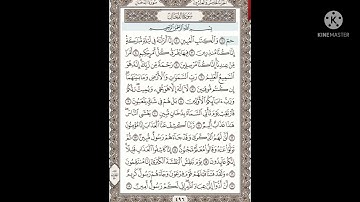 سُورَةُ الدُّخَانِ
KINEMASTER
سُورَةُ الدُّخَانِ
بِسْمِ اللَّهِ الرَّحْمَٰنِ الرَّحِيمِ
حمٓ ١ وَالْكِتَابِ الْمُبِينِ ٢ إِنَّا أَنزَلْنَاهُ فِي لَيْلَةٍ مُّبَارَكَةٍ
إِنَّا كُنَّا مُنذِرِينَ ٣ فِيهَا يُفْرَقُ كُلُّ أَمْرٍ حَكِيمٍ ٤ أَمْرًا
مِّنْ عِندِنَا إِنَّا كُنَّا مُرْسِلِينَ ٥ رَحْمَةً مِّن رَّبِّكَ إِنَّهُ هُوَ
السَّمِيعُ الْعَلِيمُ ٦ رَبِّ السَّمَاوَاتِ وَالْأَرْضِ وَمَا بَيْنَهُمَا
إِن كُنتُم مُّوقِنِينَ ٧ لَا إِلَٰهَ إِلَّا هُوَ يُحْيِي وَيُمِيتُ رَبُّكُمْ
وَرَبُّ آبَائِكُمُ الْأَوَّلِينَ ٨ بَلْ هُمْ فِي شَكٍّ يَلْعَبُونَ ٩
فَارْتَقِبْ يَوْمَ تَأْتِي السَّمَاءُ بِدُخَانٍ مُّبِينٍ ١٠ يَغْشَى النَّاسَ
هَٰذَا عَذَابٌ أَلِيمٌ ١١ رَّبَّنَا اكْشِفْ عَنَّا الْعَذَابَ إِنَّا مُؤْمِنُونَ
١٢ أَنَّىٰ لَهُمُ الذِّكْرَىٰ وَقَدْ جَاءَهُمْ رَسُولٌ مُّبِينٌ ١٣ ثُمَّ
تَوَلَّوْا عَنْهُ وَقَالُوا مُعَلَّمٌ مَّجْنُونٌ ١٤ إِنَّا كَاشِفُو الْعَذَابِ قَلِيلًا
إِنَّكُمْ عَائِدُونَ ١٥ يَوْمَ نَبْطِشُ الْبَطْشَةَ الْكُبْرَىٰ إِنَّا مُنتَقِمُونَ
١٦ وَلَقَدْ فَتَنَّا قَبْلَهُمْ قَوْمَ فِرْعَوْنَ وَجَاءَهُمْ رَسُولٌ كَرِيمٌ
١٧ أَنْ أَدُّوا إِلَيَّ عِبَادَ اللَّهِ إِنِّي لَكُمْ رَسُولٌ أَمِينٌ ١٨
٤٩٦